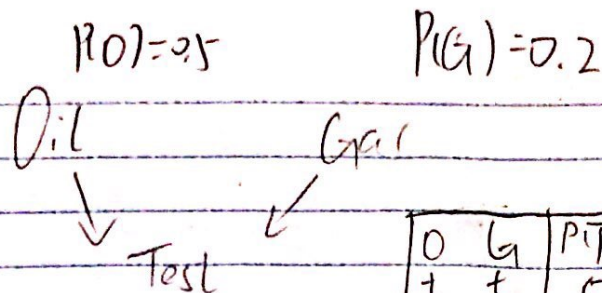 P(O)=0.5 P(G)=0.2
Oil Gas
Test
O G P(T
+ +